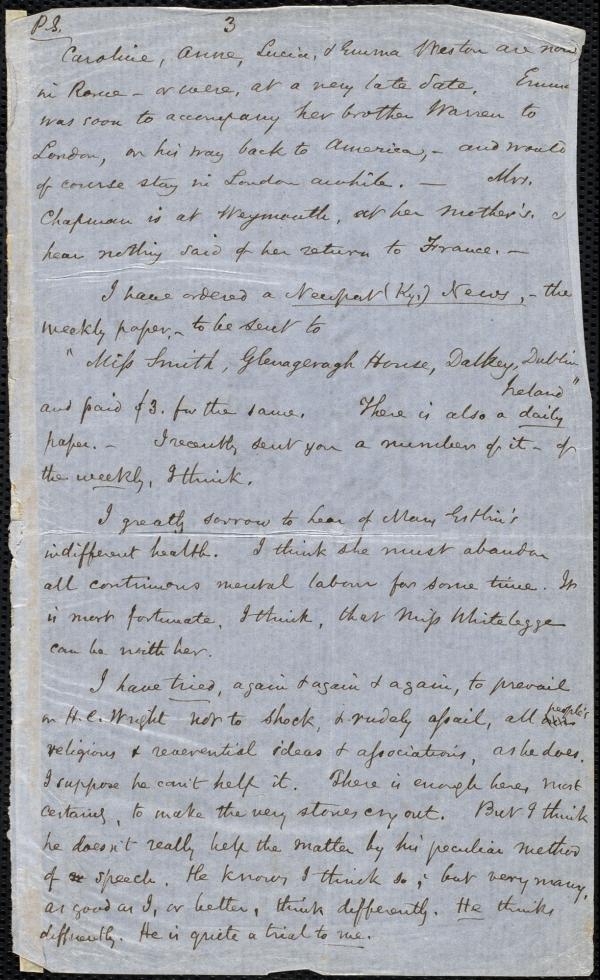 P.S. 3
Caroline, Anne, Lucia, & Emma Weston are now
in Rome - or were, at a very late date. Emma
was soon to accompany her brother Warren to
London, on his way back to America, - and would
of course stay in London awhile. - Mrs.
Chapman is at Weymouth, at her mother's. I
hear nothing said of her return to France. -
I have ordered a Newport (Ky.) News, - the
weekly paper, - to be sent to
"Miss Smith, Glenageragh House, Dalkey, Dublin
Ireland"
and paid $3. for the same. There is also a daily
paper. - I recently sent you a number of it - of
the weekly, I think.
I greatly sorrow to hear of Mary Estlin's
indifferent health. I think she must abandon
all continuous mental labour for some time. It
is most fortunate, I think, that Miss Whitelegge
can be with her.
I have tried, again & again & again, to prevail
people's
on H. C. Wright not to shock, & rudely assail, all
religious & reverential ideas & associations, as he does.
I suppose he can't help it. There is enough here, most
certainly, to make the very stones cry out. But I think
he doesn't really help the matter by his peculiar method
of speech. He knows I think so; but very many,
as good as I, or better, think differently. He thinks
differently. He is quite a trial to me.